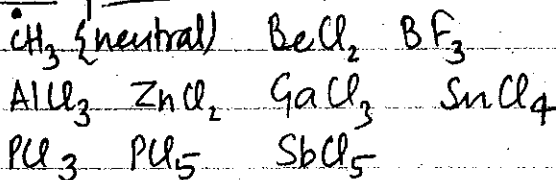 ĊH₃ {neutral) BeCl₂ BF₃
AlCl₃ ZnCl₂ GaCl₃ SnCl₄
PCl₃ PCl₅ SbCl₅